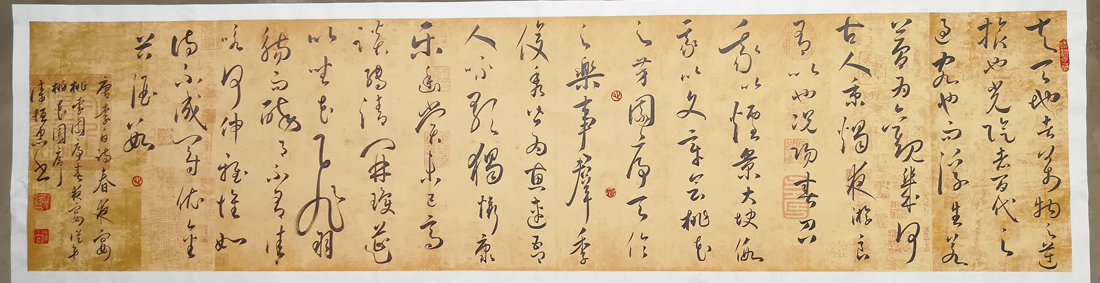 夫天地者万物之逆
旅也光阴者百代之
过客也而浮生若
梦为欢几何
古人秉烛夜游良
有以也况阳春召
我以烟景大块假
我以文章会桃花
之芳园序天伦
之乐事群季
俊秀皆为惠连吾
人咏歌独惭康
乐幽赏未已高
谈转清开琼筵
以坐花飞羽
觞而醉月不有佳
咏何伸雅怀如
诗不成罚依金
谷酒数
唐李白诗春夜宴
桃李园序春夜宴从弟
桃花园序